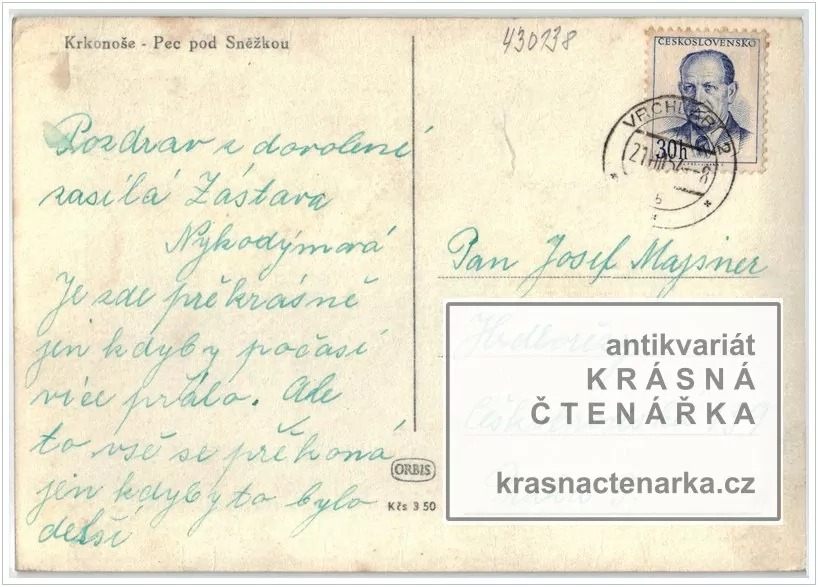 Krkonoše - Pec pod Sněžkou
430738
ČESKOSLOVENSKO
30h
VRCHLABÍ 2
Pozdrav z dovolené
zasílá Zástava
Nykodýmová
Je zde překrásně
jen kdyby počasí
více přálo. Ale
to vše se překoná
jen kdyby to bylo
delší
Pan Josef Majsner
ORBIS
Kčs 3 50
antikvariát
KRÁSNÁ
ČTENÁŘKA
krasnactenarka.cz